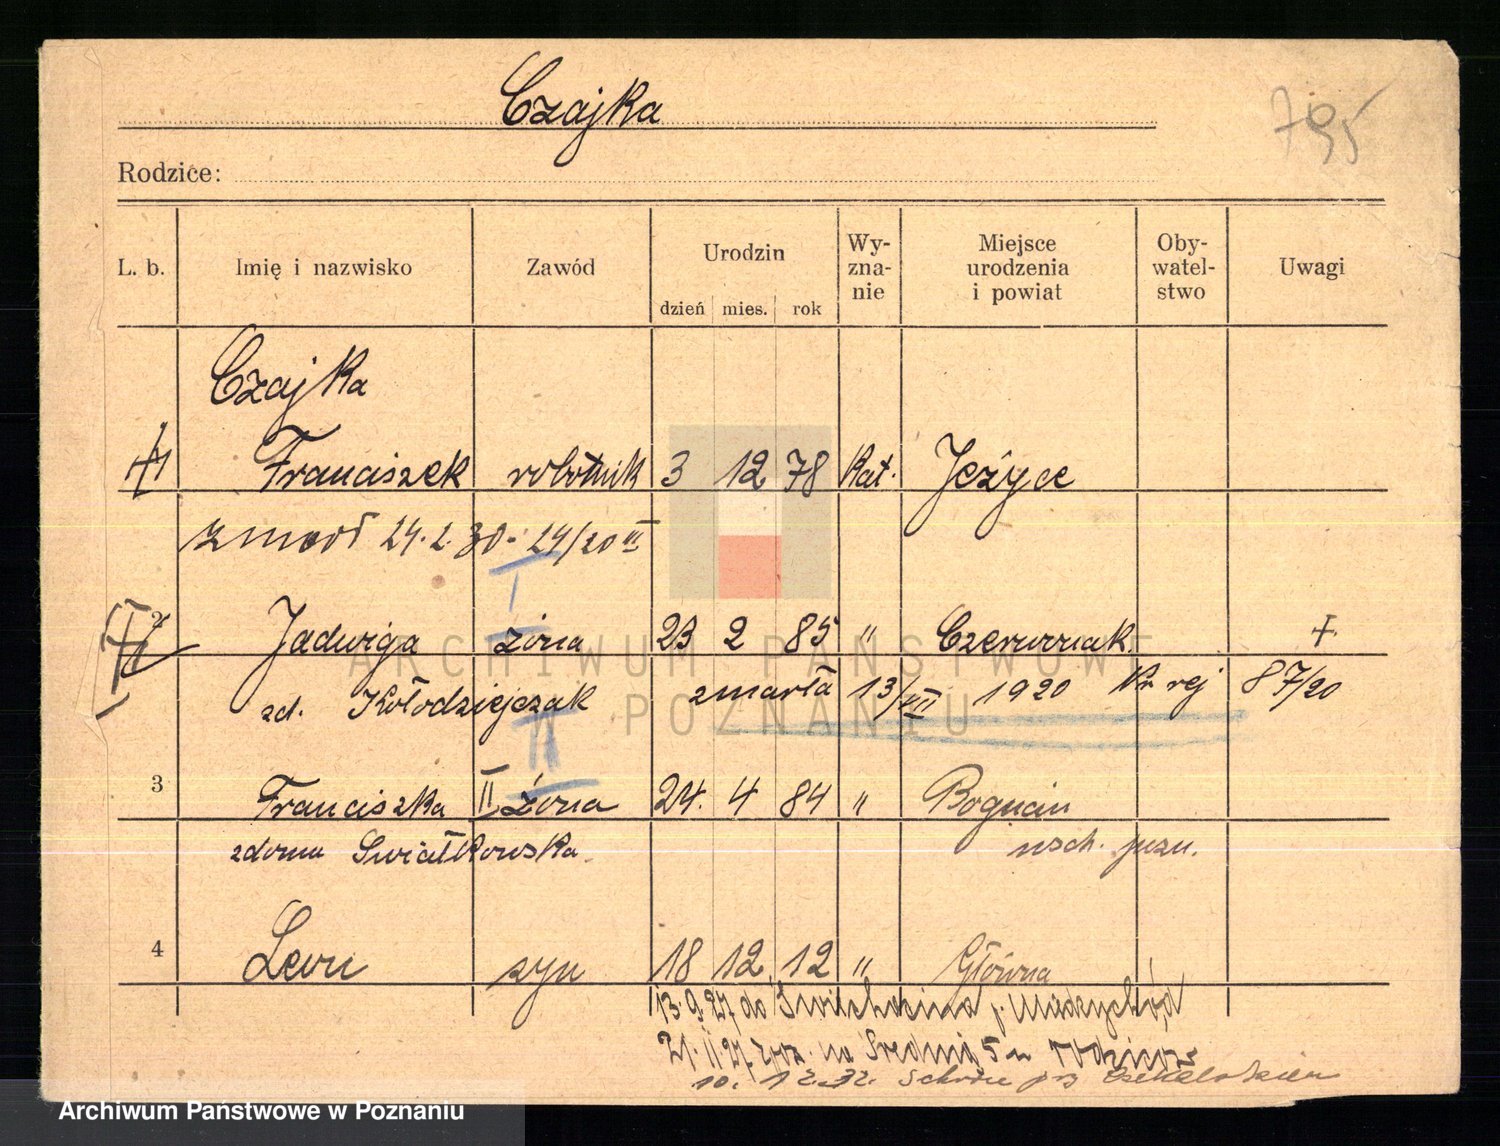 Czajka
795
Rodzice:
L. b. Imię i nazwisko Zawód Urodzin dzień mies. rok Wy-zna-nie Miejsce urodzenia i powiat Oby-watel-stwo Uwagi
Czajka
Franciszek robotnik 3 12 78 Kat. Jeżyce
zmarł 24. 2. 30. 24/20 III
I
2 Jadwiga żona 23 2 85 " Czerwonak +
zd. Kołodziejczak zmarła 13/VII 1920 Nr rej 87/20
II
3 Franciszka II żona 24. 4 84 "
zdomu Świątkowska. wsch. pozn.
4 Leon syn 18 12 12 " Główna
13. 9. 27 do p. Międzychód
21. 11. 27. na Średnia 5 rodziców
10. 12. 32.
ARCHIWUM PAŃSTWOWE
W POZNANIU
Archiwum Państwowe w Poznaniu